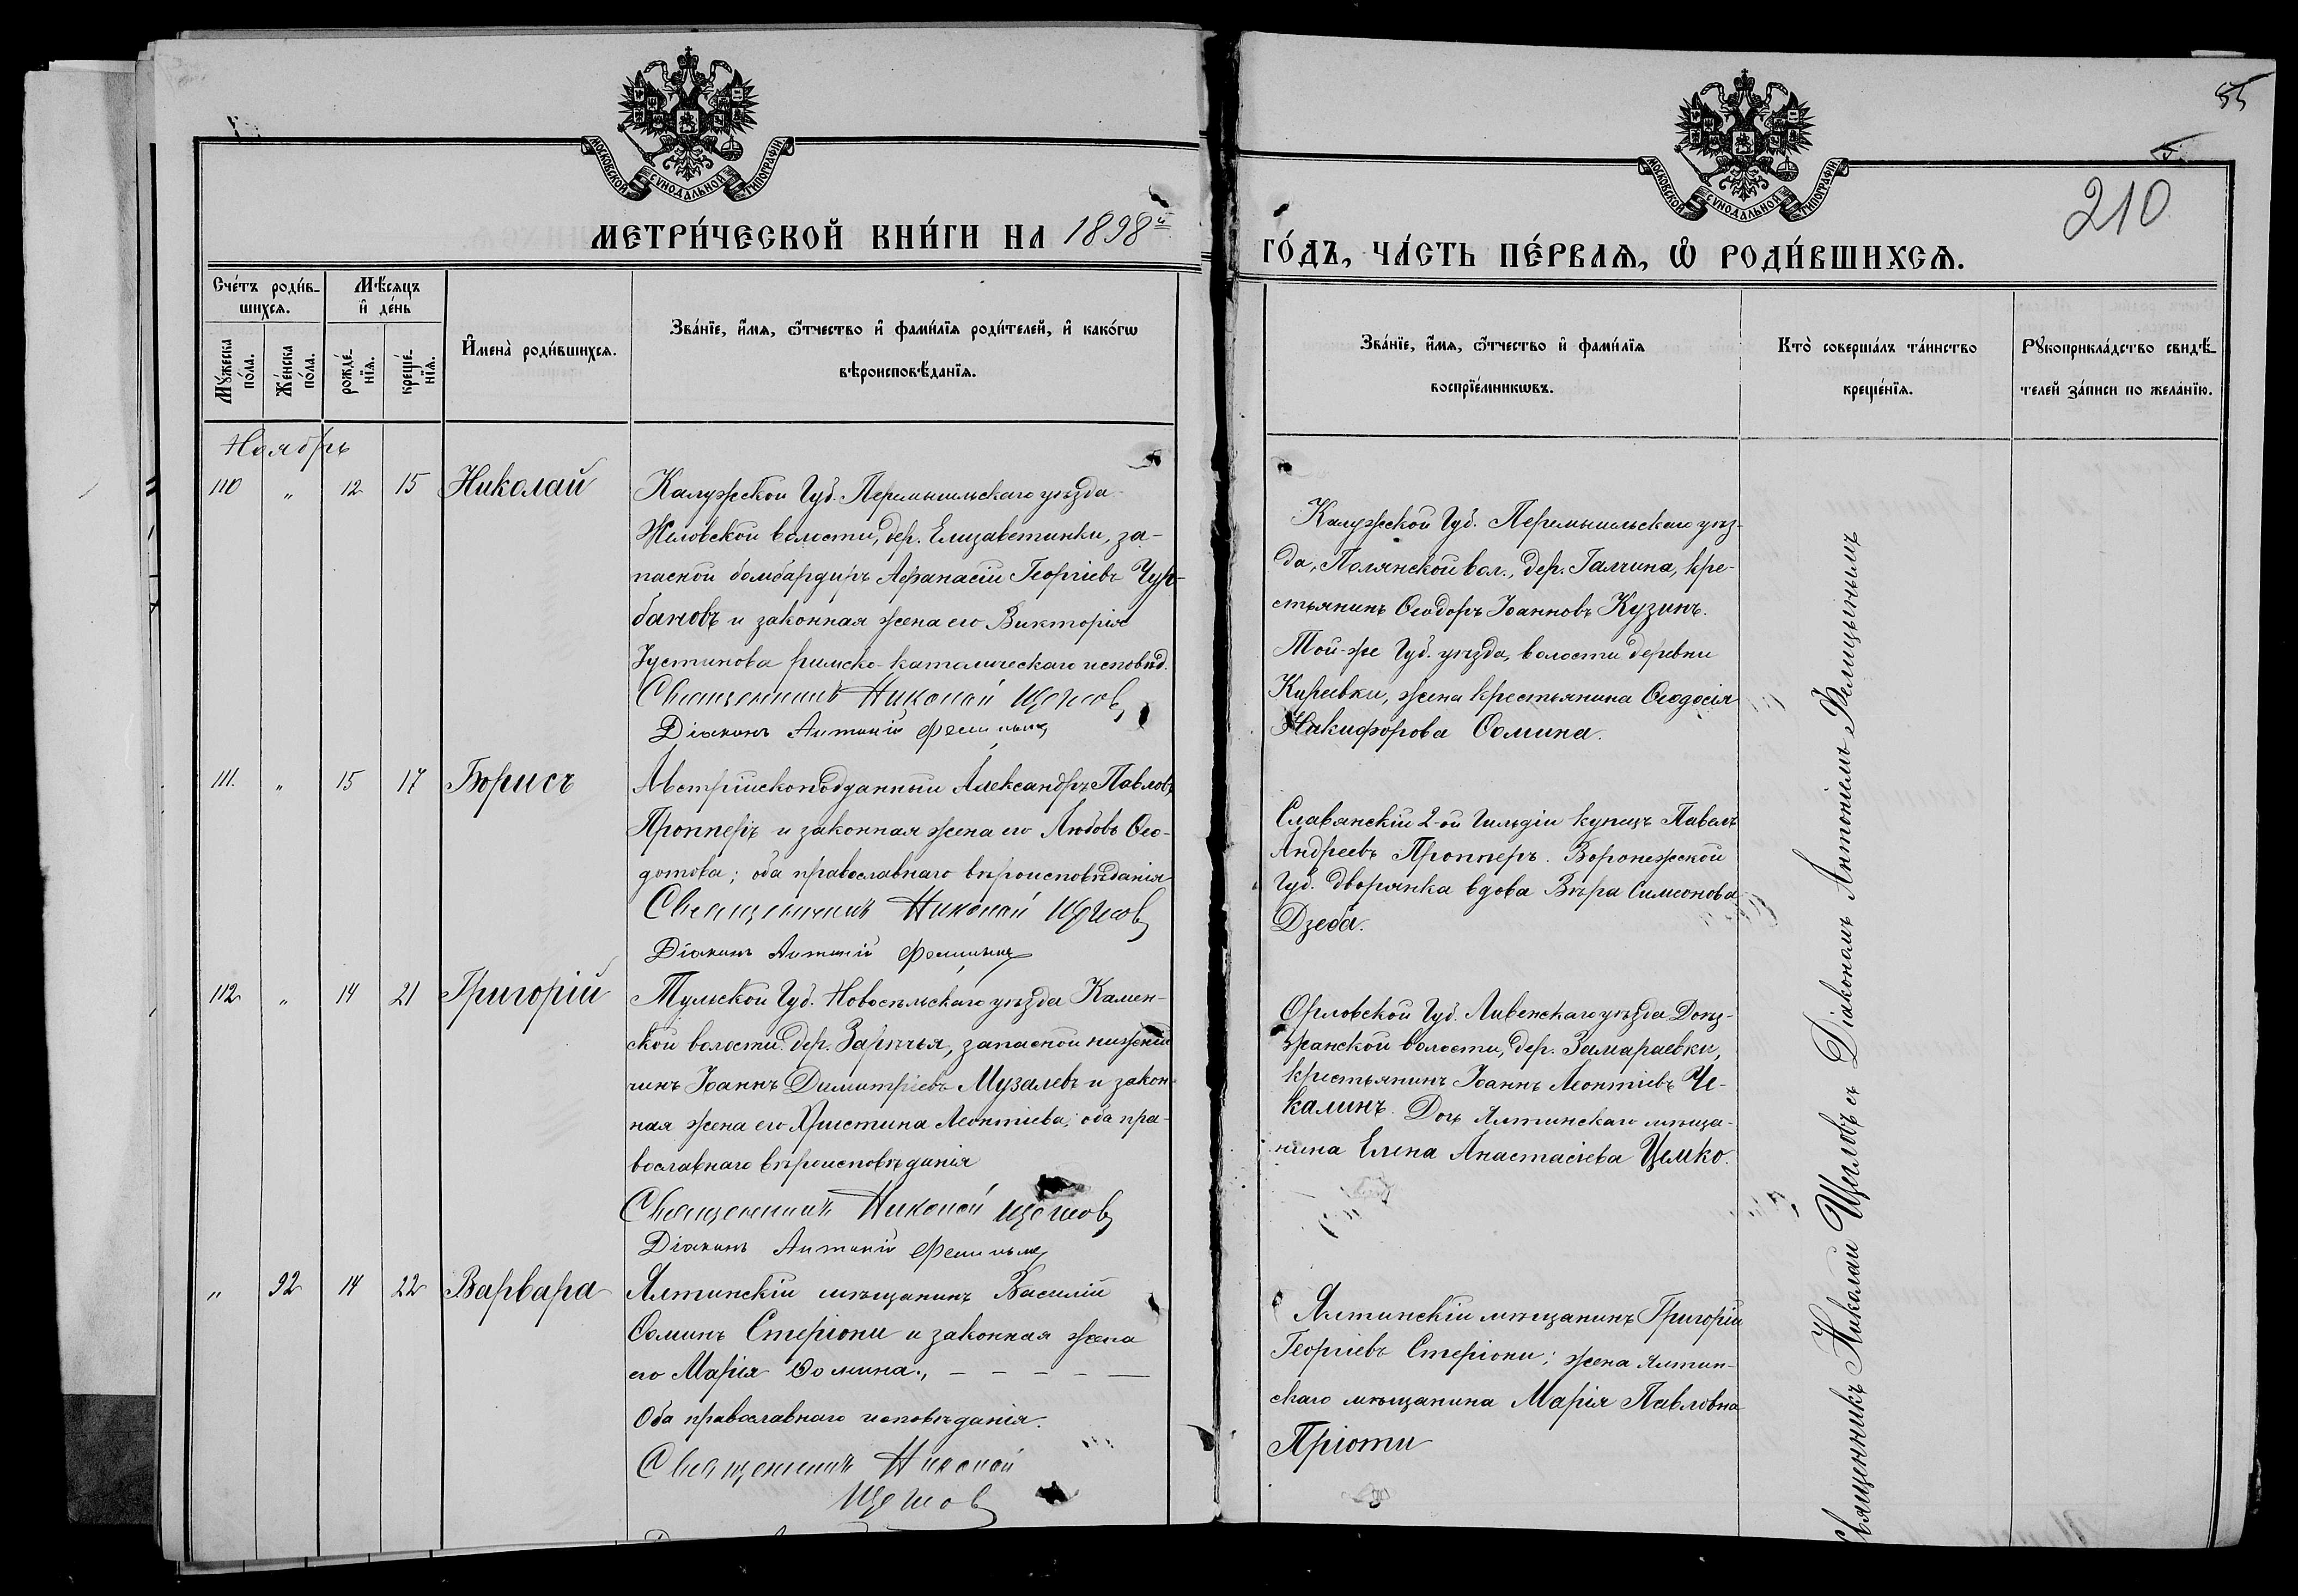 55
5
210
МОСКОВСКОЙ СѴНОДАЛЬНОЙ ТИПОГРАФІИ
МОСКОВСКОЙ СѴНОДАЛЬНОЙ ТИПОГРАФІИ
МЕТРИ́ЧЕСКОЙ КНИ́ГИ НА 1898й
ГО́ДЪ, ЧА́СТЬ ПЕ́РВАѦ, Ѡ РОДИ́ВШИХСѦ.
Сче́тъ роди́в-
шихсѧ.
Мѣ́сяцъ
и҆ де́нь
Мꙋ́жеска
по́ла.
Же́нска
по́ла.
рожде́-
нїѧ.
креще́-
нїѧ.
И҆мена̀ роди́вшихсѧ.
Зва́нїе, и҆́мѧ, ѻ҆́тчество и҆ фами́лїѧ роди́телей, и҆ како́гѡ
вѣроисповѣ́данїѧ.
Зва́нїе, и҆́мѧ, ѻ҆́тчество и҆ фами́лїѧ
воспрїе́мникѡвъ.
Кто̀ соверша́лъ та́инство
креще́нїѧ.
Рꙋкоприкла́дство свидѣ́-
телей за́писи по жела́нїю.
Ноябрь
110 " 12 15 Николай
Калужской Губ. Перемышльскаго уѣзда
Желовской волости, дер. Елизаветинки, за-
пасной бомбардиръ Аѳанасій Георгіевъ Чур-
бановъ и законная жена его Викторія
Іустинова римско-католическаго исповѣд.
Священникъ Николай Щегловъ
Діаконъ Антоній Фелицынъ
Калужской Губ. Перемышльскаго уѣз-
да, Полянской вол., дер. Галкина, кре-
стьянинъ Ѳеодоръ Іоанновъ Кузинъ.
Той-же Губ. уѣзда, волости деревни
Киреевки, жена крестьянина Ѳеодосія
Никифорова Ѳомина.
111. " 15 17 Борисъ
Австрійскоподданный Александръ Павловъ
Пропперъ и законная жена его Любовь Ѳео-
дотова; оба православнаго вѣроисповѣданія
Священникъ Николай Щегловъ
Діаконъ Антоній Фелицынъ
Славянскій 2-ой Гильдіи купецъ Павелъ
Андреевъ Пропперъ. Воронежской
Губ. дворянка вдова Вѣра Симеонова
Дзеба.
112 " 14 21 Григорій
Тульской Губ. Новосильскаго уѣзда Камен-
ской волости дер. Зарѣчья, запасной нижній
чинъ Іоаннъ Димитріевъ Музалевъ и закон-
ная жена его Христина Леонтіева; оба пра-
вославнаго вѣроисповѣданія
Священникъ Николай Щегловъ
Діаконъ Антоній Фелицынъ
Орловской Губ. Ливенскаго уѣзда
волости, дер. Замараевки,
крестьянинъ Іоаннъ Леонтіевъ Че-
калинъ. Дочь Ялтинскаго мѣща-
нина Елена Анастасіева Цемко.
" 92 14 22 Варвара
Ялтинскій мѣщанинъ Василій
Ѳоминъ Стеріони и законная жена
его Марія Ѳомина.,
Оба православнаго исповѣданія.
Священникъ Николай
Щегловъ
Ялтинскій мѣщанинъ Григорій
Георгіевъ Стеріони; жена Ялтин-
скаго мѣщанина Марія Павловна
Пріоти
Священникъ Николай Щегловъ съ Діакономъ Антоніемъ Фелицынымъ